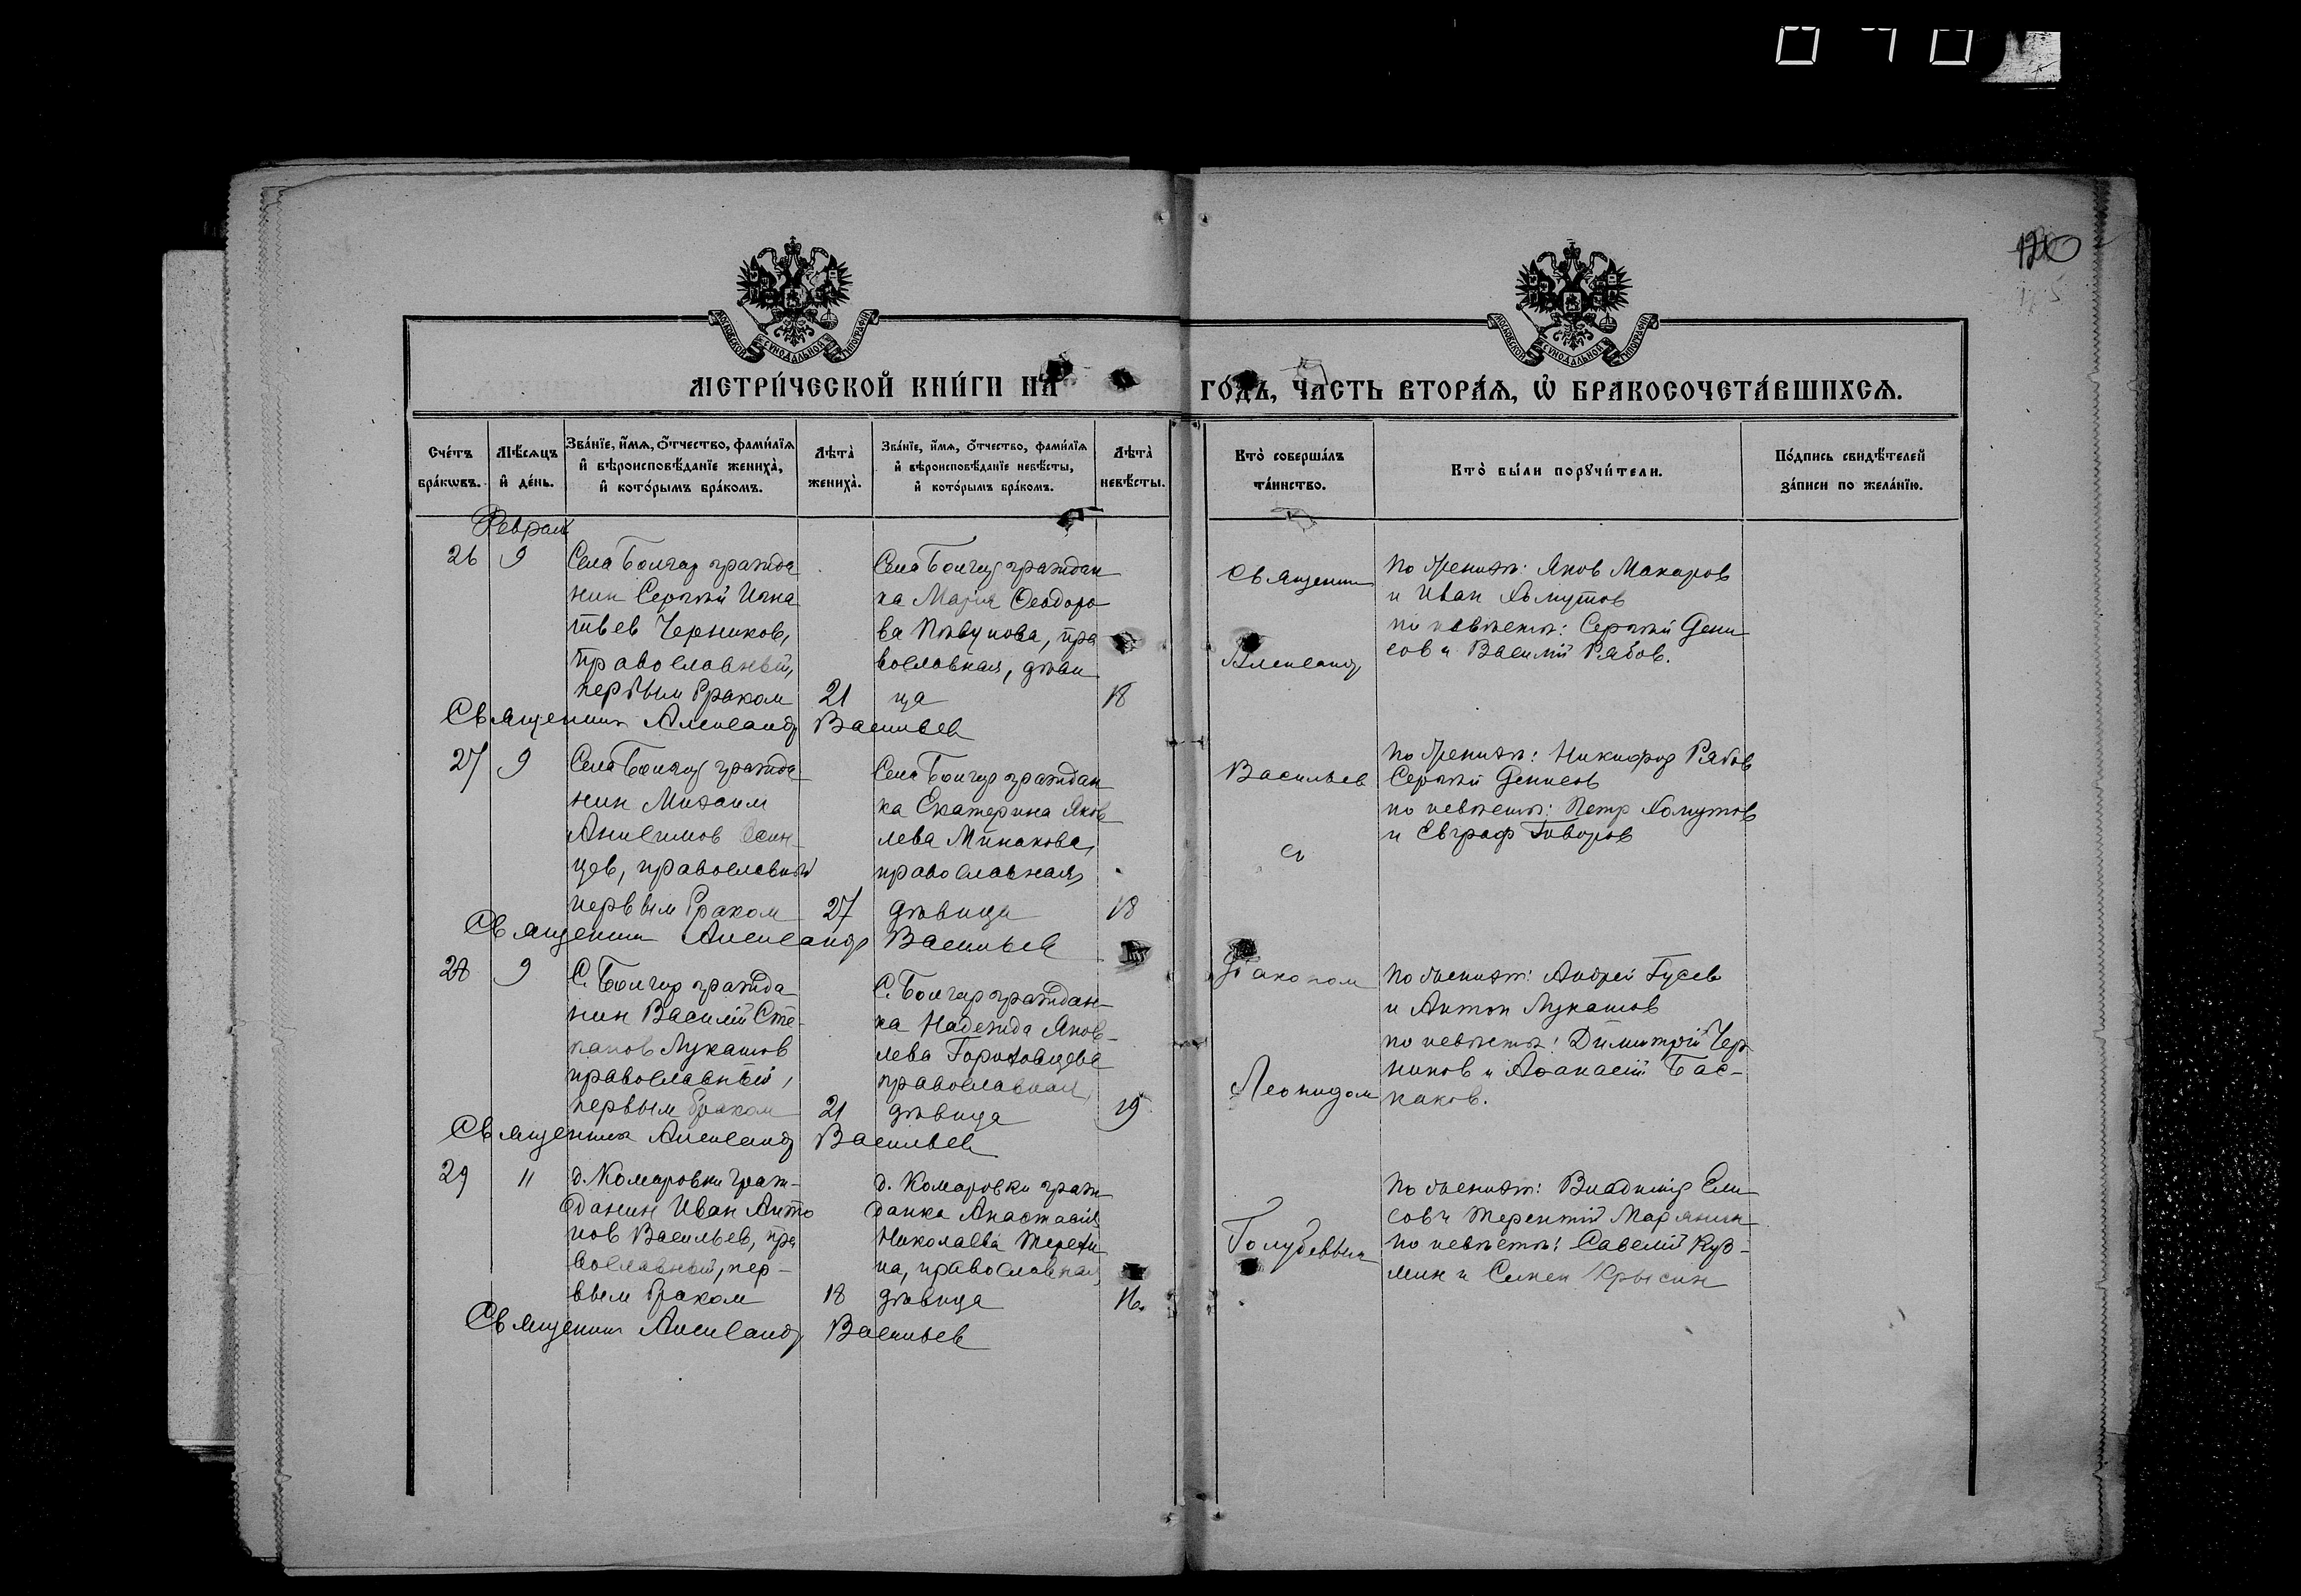 120
МОСКОВСКОЙ СѴНОДАЛЬНОЙ ТИПОГРАФІИ
МОСКОВСКОЙ СѴНОДАЛЬНОЙ ТИПОГРАФІИ
МЕТРИ́ЧЕСКОЙ КНИ́ГИ НА
ГО́ДЪ, ЧА́СТЬ ВТОРА́Ѧ, Ѡ҆ БРАКОСОЧЕТА́ВШИХСѦ.
Сче́тъ бра́кѡвъ.
Мѣ́сѧцъ и҆ де́нь.
Зва́нїе, и҆́мѧ, ѻ҆́тчество, фами́лїѧ и҆ вѣроисповѣ́данїе жениха̀, и҆ кото́рымъ бра́комъ.
Лѣта̀ жениха̀.
Зва́нїе, и҆́мѧ, ѻ҆́тчество, фами́лїѧ и҆ вѣроисповѣ́данїе невѣ́сты, и҆ кото́рымъ бра́комъ.
Лѣта̀ невѣ́сты.
Кто̀ соверша́лъ та́инство.
Кто̀ бы́ли порꙋчи́тели.
По́дпись свидѣ́телей за́писи по жела́нїю.
Феврал
26 9
Села Болгар гражда
нин Сергѣй Игна
тьев Черников,
православный,
первым браком 21
Села Болгар граждан
ка Марія Феодоро
ва, пра
вославная, дѣви
ца 18
Священник Александр Васильев
Священник
Александр
по женихѣ: Яков Макаров
и Иван Хомутов
по невѣстѣ: Сергѣй Дени
сов и Василій Рябов.
27 9
Села Болгар гражда
нин Михаил
Анисимов Осин-
цев, православный
первым браком 27
Села Болгар граждан
ка Екатерина Яков
лева Минакова,
православная,
дѣвица 18
Священник Александр Васильев
Васильев
с
по женихѣ: Никифор Рябов
Сергѣй Денисов
по невѣстѣ: Петр Хомутов
и Евграф Говоров
28 9
С. Болгар гражда
нин Василій Сте-
панов Лукашов
православный,
первым браком 21
С. Болгар граждан-
ка Надежда Яков-
лева Гориховцева
православная,
дѣвица 19
Священник Александр Васильев
Діаконом
Леонидом
по женихѣ: Андрей Гусев
и Антон Лукашов
по невѣстѣ: Димитрій Чер
ников и Афанасій Бас-
каков.
29 11
д. Комаровки граж-
данин Иван Анто
нов Васильев, пра
вославный, пер-
вым браком 18
д. Комаровки граж
данка Анастасія
Николаева Терехи
на, православная
дѣвица 16.
Священник Александр Васильев
Голубевым
по женихѣ: Владимір Ели
сов и Терентій Марянин
по невѣстѣ: Савелій Куз-
мин и Симен Крысин